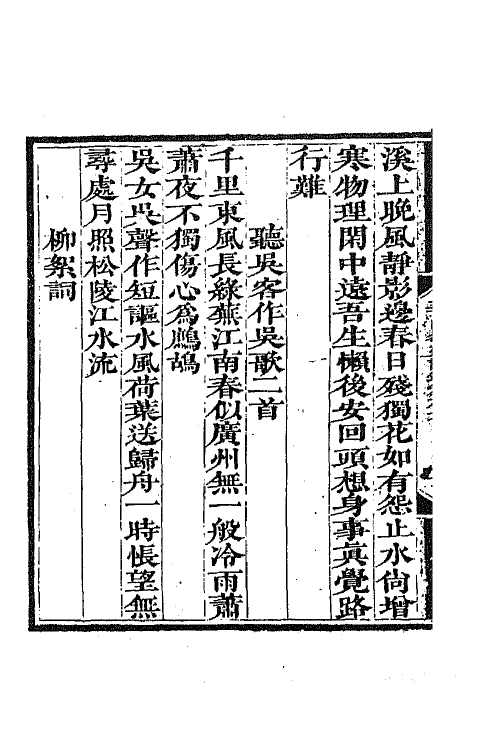 溪上晚風靜影邊春日殘獨花如有怨止水尙增
寒物理閑中遠吾生懶後安回頭想身事真覺路
行難
聽吳客作吳歌二首
千里東風長綠蕪江南春似廣州無一般冷雨蕭
蕭夜不獨傷心為鷓鴣
吳女吳聲作短謳水風荷葉送歸舟一時悵望無
尋處月照松陵江水流
柳絮詞